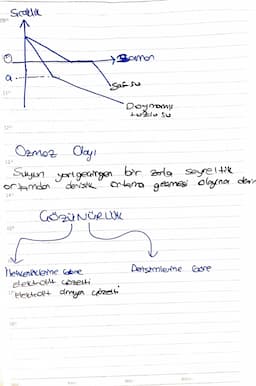 Sıcaklık
0
Zaman
a
Saf su
Doymamış
tuzlu su
Ozmoz Olayı
Suyun yarı geçirgen bir zarla seyreltik
ortamdan derişik ortama geçmesi olayına den
ÇÖZÜNÜRLÜK
Göre
Derişimlerine Göre
elektrolit çözelti
elektrolit olmayan çözelti